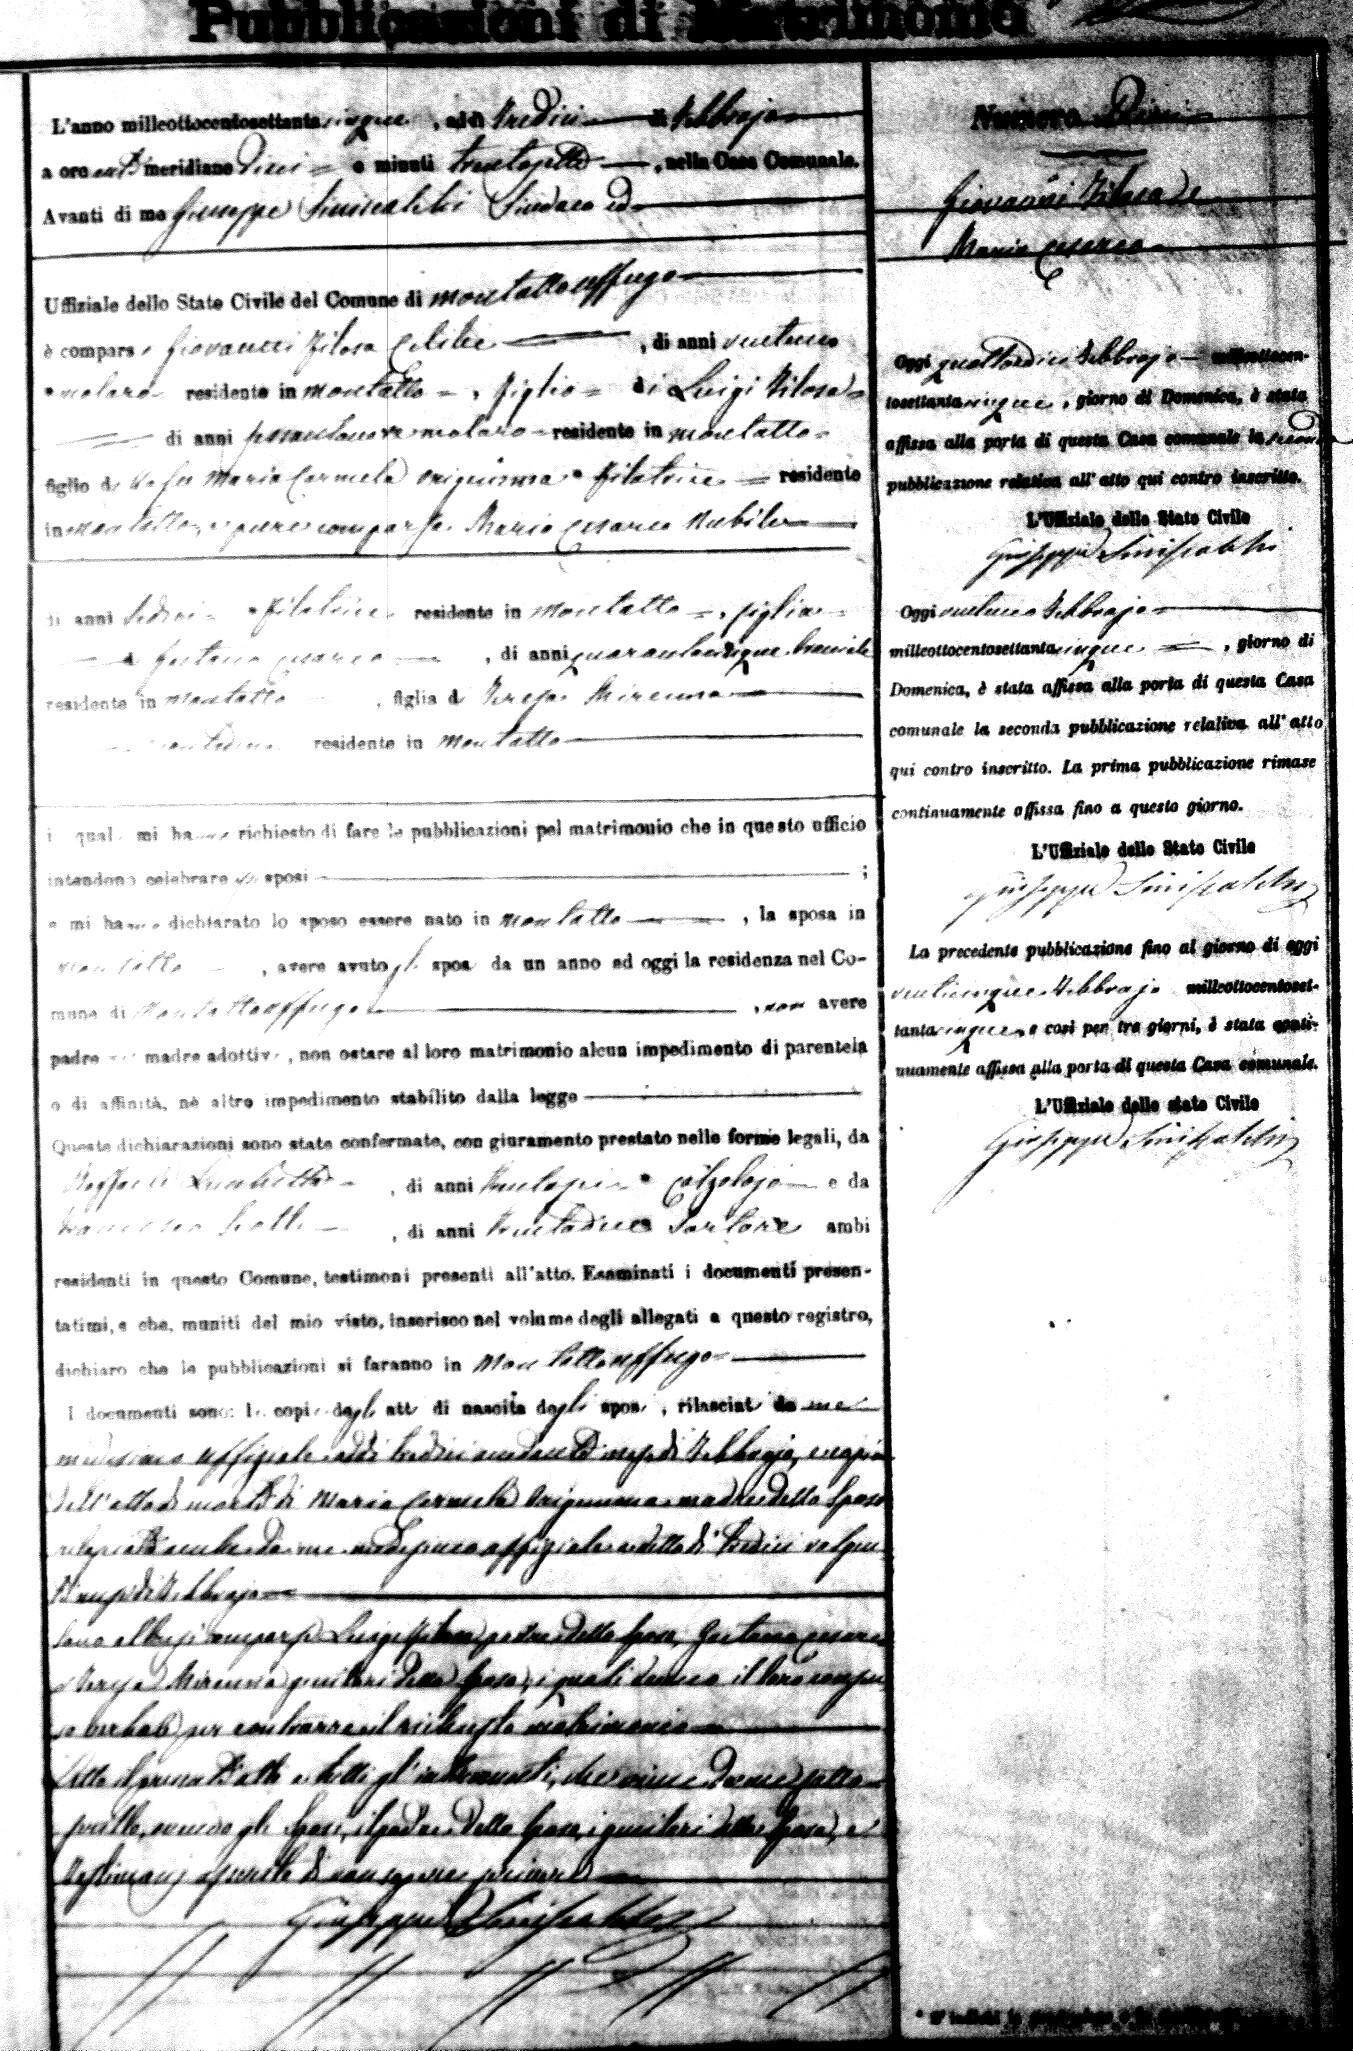 Pubblicazioni di Matrimonio
L'anno milleottocentosettantacinque, addì tredici di Febbrajo
a ore antimeridiane dieci e minuti trentasette, nella Casa Comunale.
Avanti di me Giuseppe Siniscalchi Sindaco ed
Uffiziale dello Stato Civile del Comune di Montaltouffugo
è comparso Giovanni Filosa Celibe, di anni ventuno
molaro residente in Montalto, figlio di Luigi Filosa
di anni molaro residente in Montalto
figlio di Maria Carmela filatrice residente
in Montalto, e pure comparsa Maria Cesareo Nubile
di anni sedici filatrice residente in Montalto, figlia
di Gaetano Cesareo, di anni quarantacinque bracciale
residente in Montalto, figlia di Teresa Mirenna
contadina residente in Montalto
i quali mi hanno richiesto di fare le pubblicazioni pel matrimonio che in questo ufficio
intendono celebrare gli sposi ;
e mi hanno dichiarato lo sposo essere nato in Montalto, la sposa in
Montalto, avere avuto gli sposi da un anno ad oggi la residenza nel Co-
mune di Montaltouffugo, non avere
padre nè madre adottivi, non ostare al loro matrimonio alcun impedimento di parentela
o di affinità, nè altro impedimento stabilito dalla legge
Queste dichiarazioni sono state confermate, con giuramento prestato nelle forme legali, da
Raffaele, di anni calzolajo e da
Francesco, di anni trentadue Sartore ambi
residenti in questo Comune, testimoni presenti all'atto. Esaminati i documenti presen-
tatimi, e che, muniti del mio visto, inserisco nel volume degli allegati a questo registro,
dichiaro che le pubblicazioni si faranno in Montaltouffugo
I documenti sono: le copie degli atti di nascita degli sposi, rilasciati da me
medesimo uffiziale addì tredici andante mese di Febbrajo, e copia
dell'atto di morte di Maria Carmela madre dello sposo
rilasciata anche da me medesimo uffiziale a detto dì tredici volgen
te mese di Febbrajo
Sono altresì comparsi Luigi Filosa padre dello sposo, Gaetano Cesareo
e Teresa Mirenna genitori della sposa, i quali danno il loro consen
so verbale per contrarre il richiesto matrimonio
Letto il presente atto a tutti gl'intervenuti, che viene da me sotto
scritto, avendo gli sposi, il padre dello sposo, i genitori della sposa, e
testimonj asserito di non sapere scrivere
Giuseppe Siniscalchi
Numero Dieci
Giovanni Filosa e
Maria Cesareo
Oggi quattordici Febbrajo milleottocen-
tosettantacinque, giorno di Domenica, è stata
affissa alla porta di questa Casa comunale la seconda
pubblicazione relativa all'atto qui contro inscritto.
L'Uffiziale dello Stato Civile
Giuseppe Siniscalchi
Oggi ventuno Febbrajo
milleottocentosettantacinque, giorno di
Domenica, è stata affissa alla porta di questa Casa
comunale la seconda pubblicazione relativa all'atto
qui contro inscritto. La prima pubblicazione rimase
continuamente affissa fino a questo giorno.
L'Uffiziale dello Stato Civile
Giuseppe Siniscalchi
La precedente pubblicazione fino al giorno di oggi
venticinque Febbrajo milleottocentoset-
tantacinque, e così per tre giorni, è stata conti-
nuamente affissa alla porta di questa Casa comunale.
L'Uffiziale dello stato Civile
Giuseppe Siniscalchi